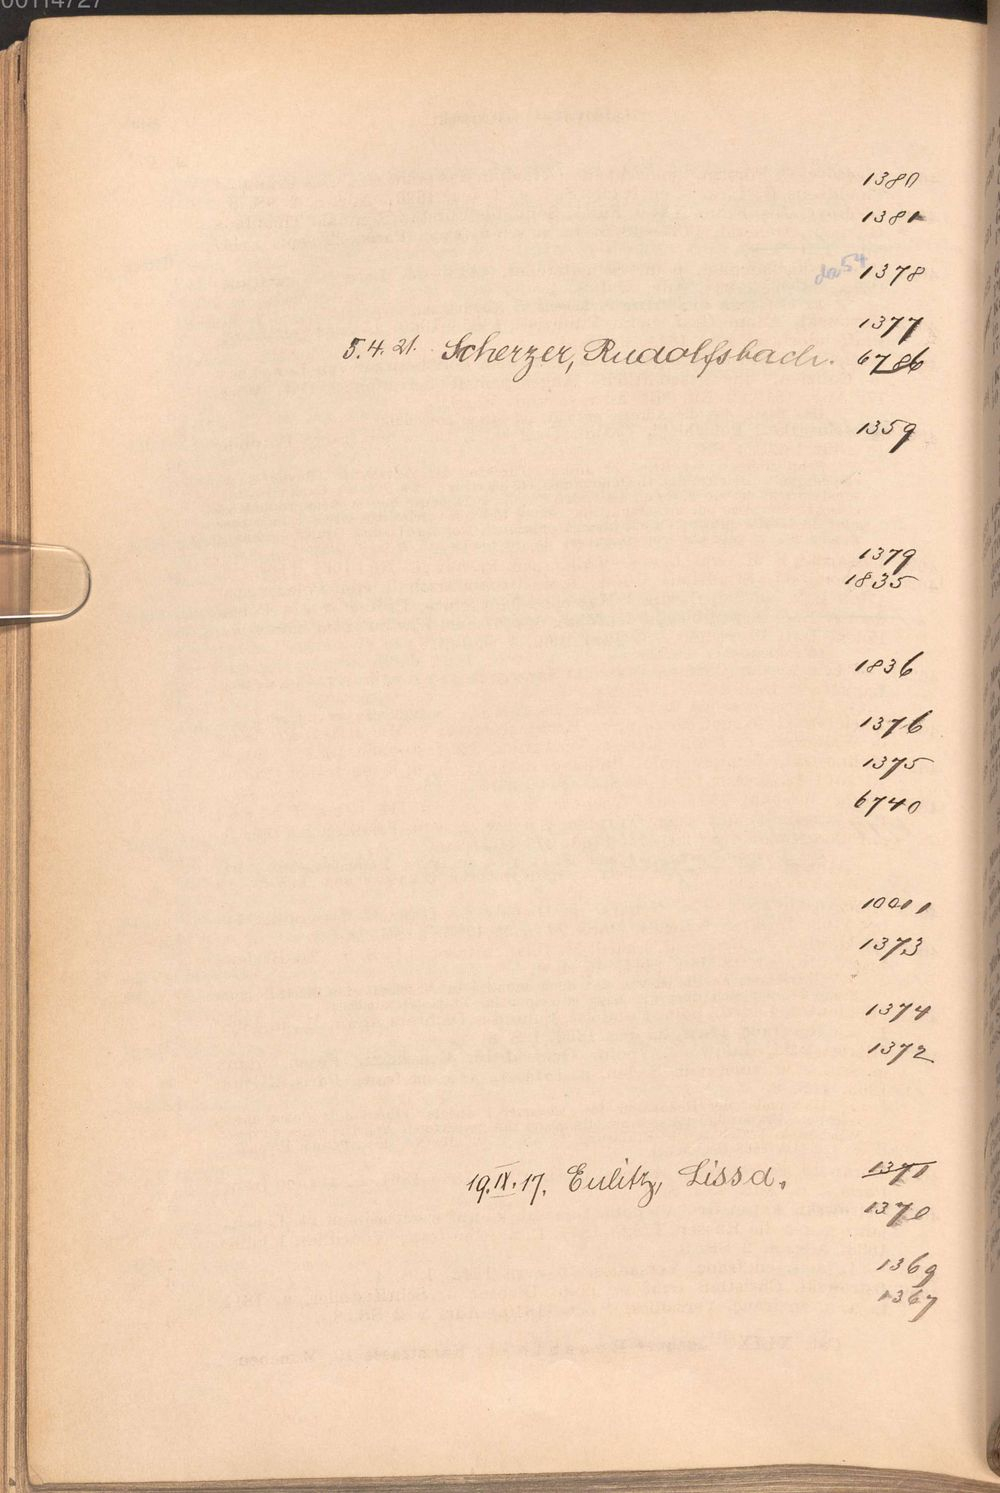 00114727
1380
1381
da 54 1378
1377
5.4.21. Scherzer, Rudolfsbach. 6786
1359
1379
1835
1836
1376
1375
6740
10011
1373
1374
1372
19.IX.17. Eulitz, Lissa. 1371
1370
1369
1367